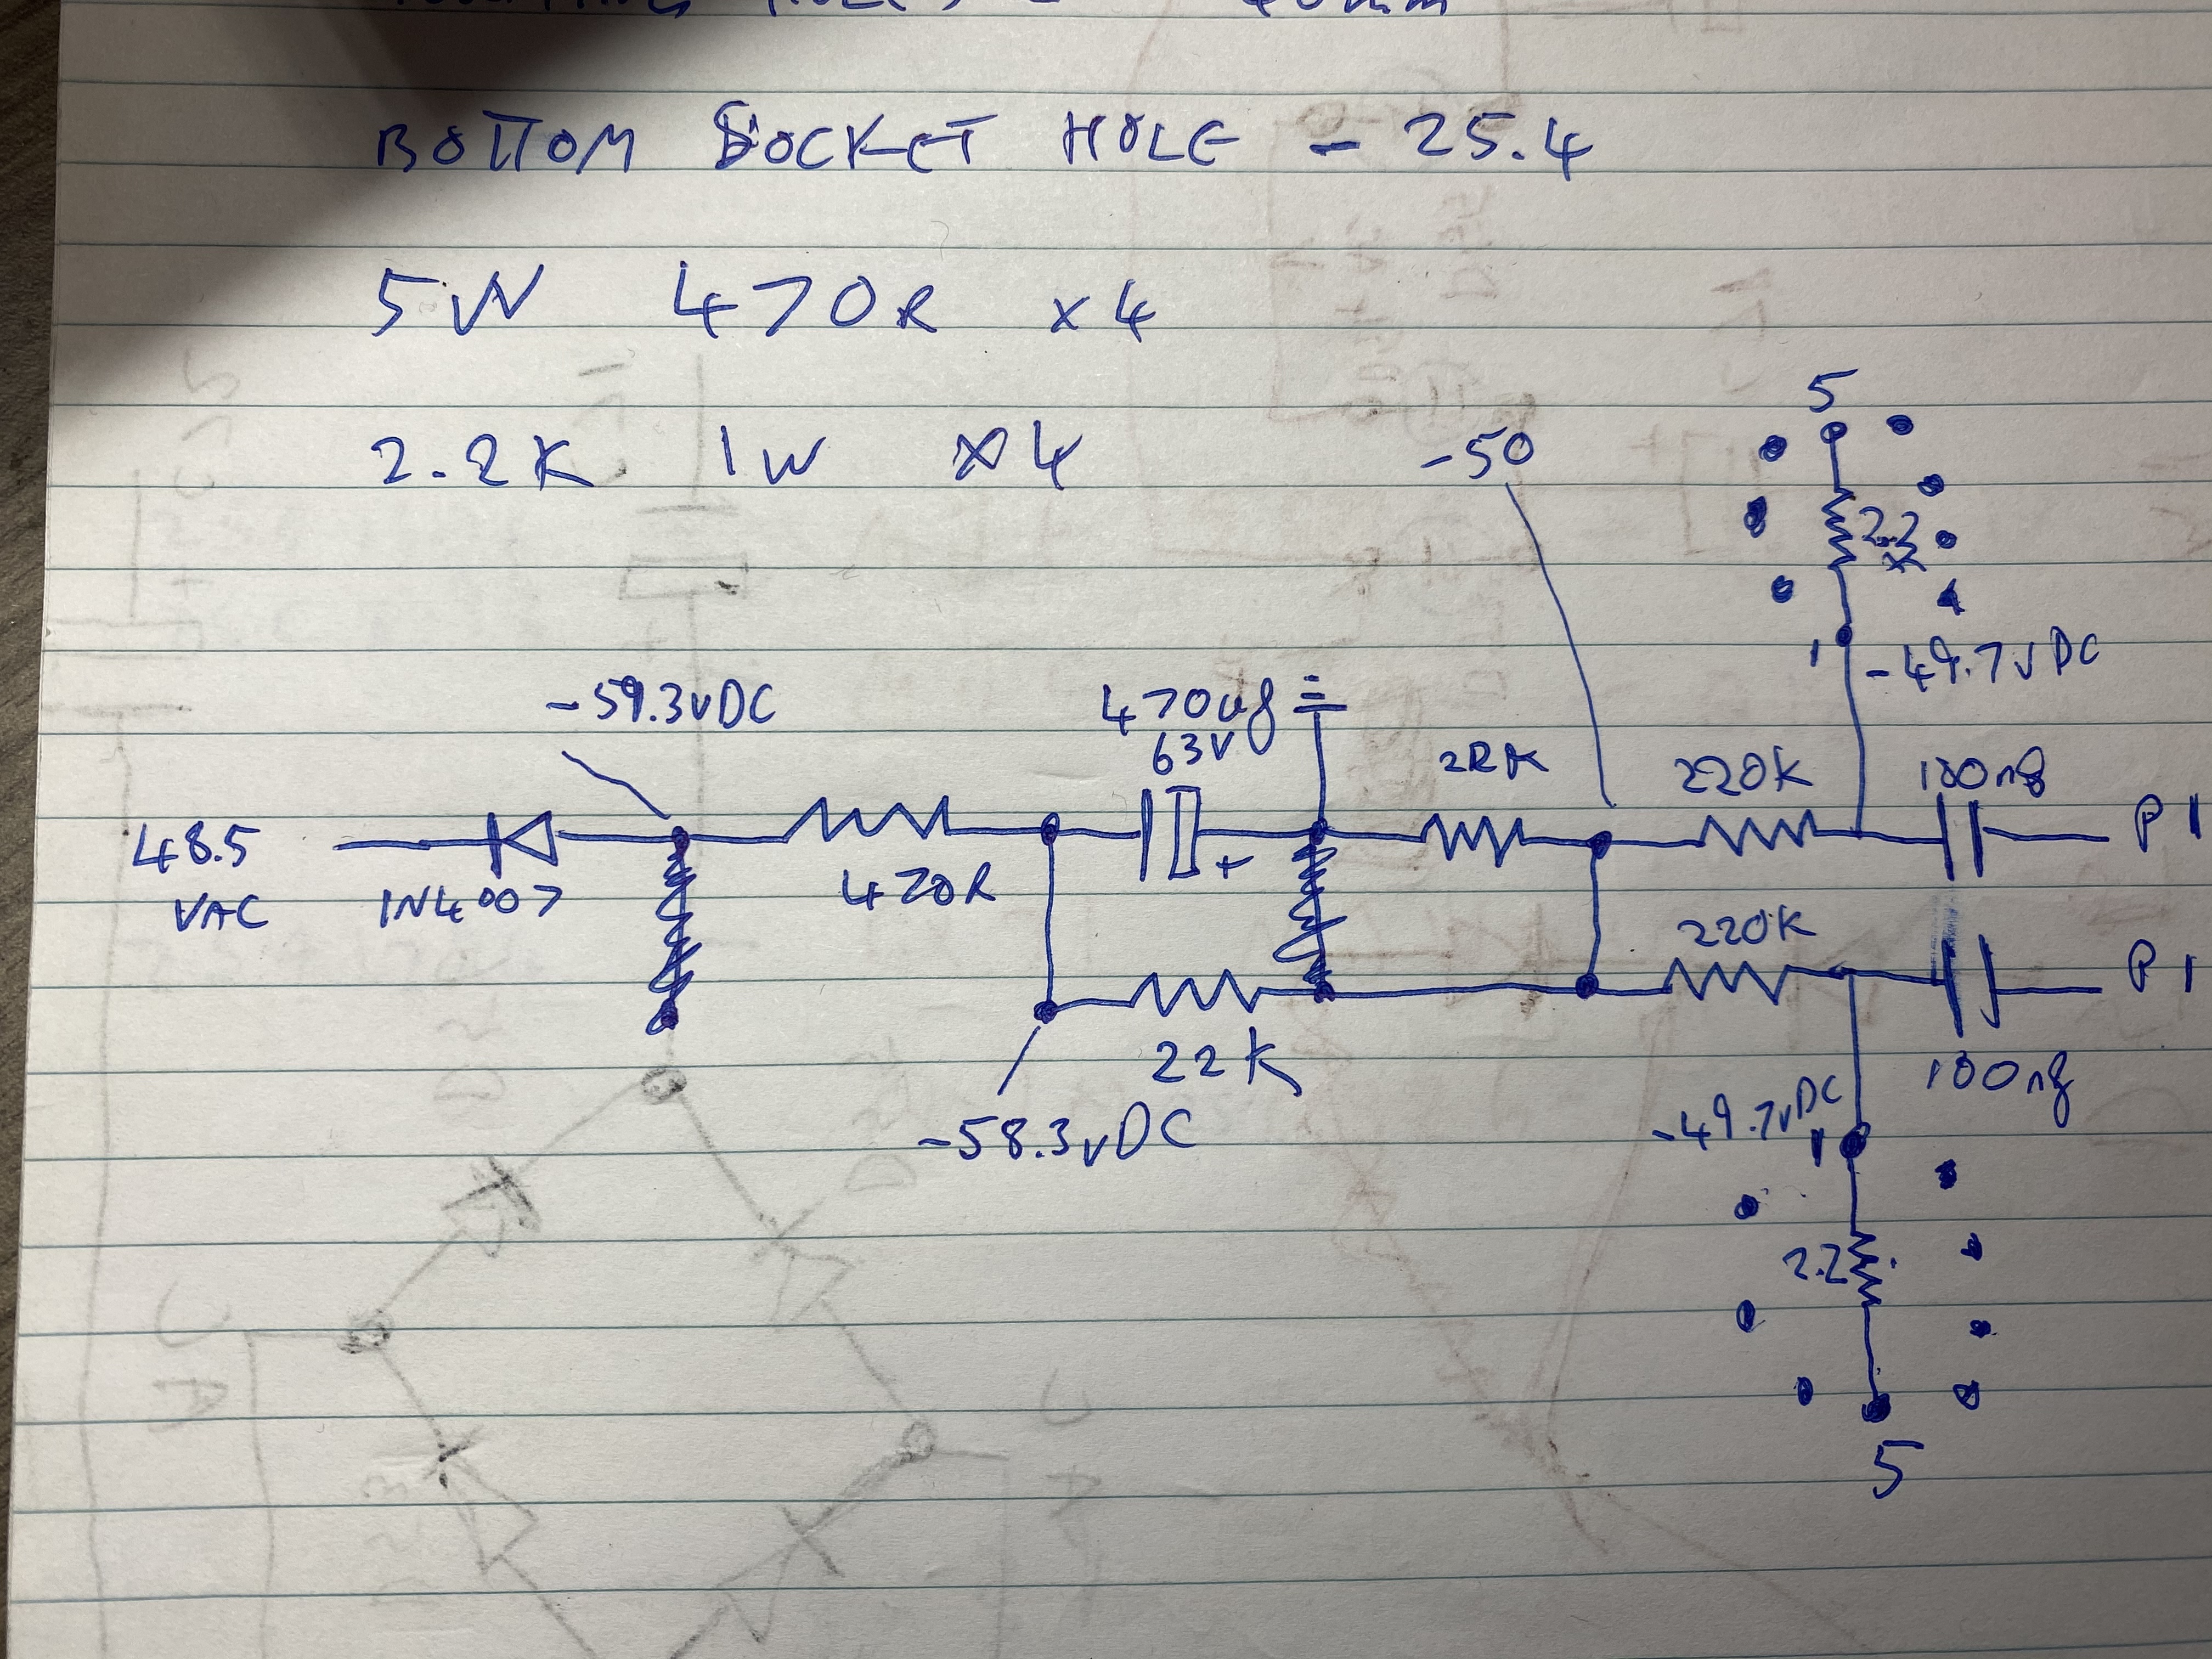 BOTTOM SOCKET HOLE - 25.4
5W 470R x4
2.2K 1W x4
-50
5
2.2
1
-49.7vDC
-59.3vDC
470uf
63V
22K
220K
100nf
P1
48.5
VAC
1N4007
470R
+
220K
P1
22K
100nf
-58.3vDC
-49.7vDC
1
2.2
5